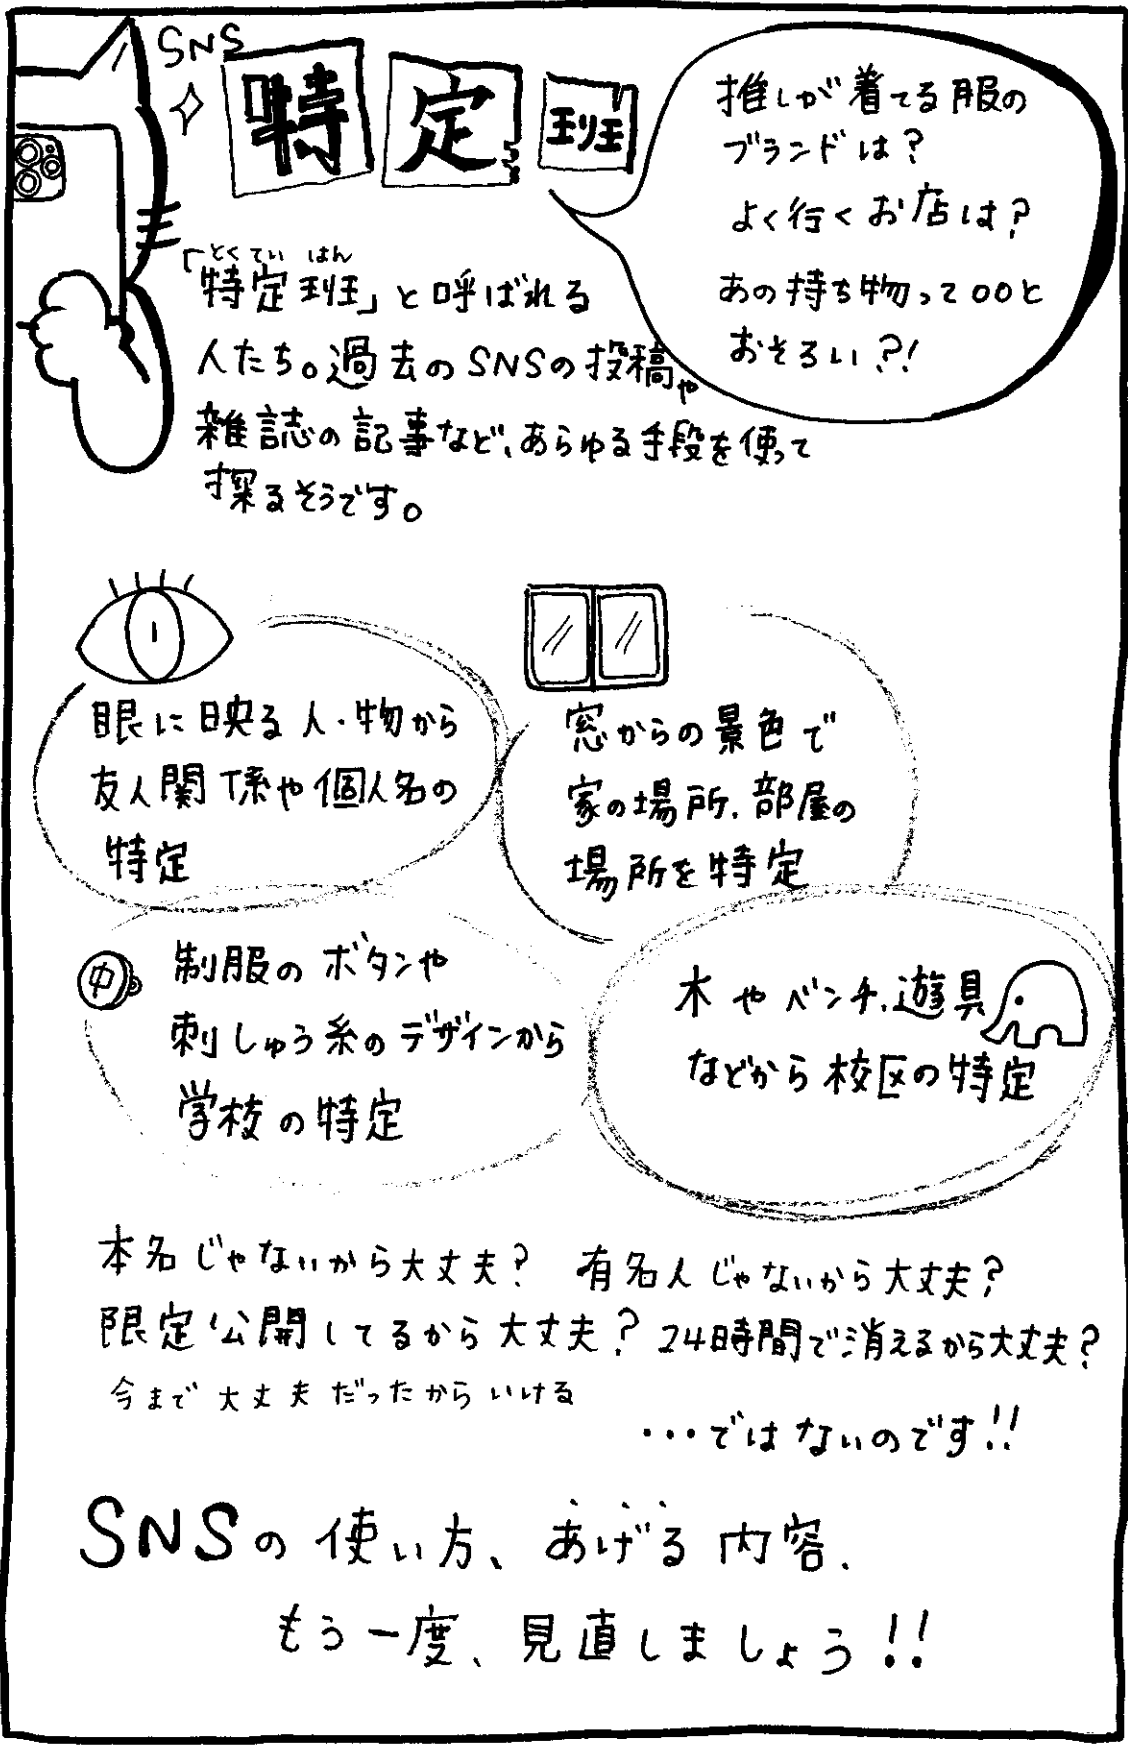 SNS
特定班
推しが着てる服の
ブランドは?
よく行くお店は?
あの持ち物って○○と
おそろい?!
とくてい はん
「特定班」と呼ばれる
人たち。過去のSNSの投稿や
雑誌の記事など、あらゆる手段を使って
探るそうです。
眼に映る人・物から
友人関係や個人名の
特定
窓からの景色で
家の場所、部屋の
場所を特定
中
制服のボタンや
刺しゅう糸のデザインから
学校の特定
木やベンチ、遊具
などから校区の特定
本名じゃないから大丈夫? 有名人じゃないから大丈夫?
限定公開してるから大丈夫? 24時間で消えるから大丈夫?
今まで大丈夫だったからいける
…ではないのです!!
SNSの使い方、あげる内容、
もう一度、見直しましょう!!